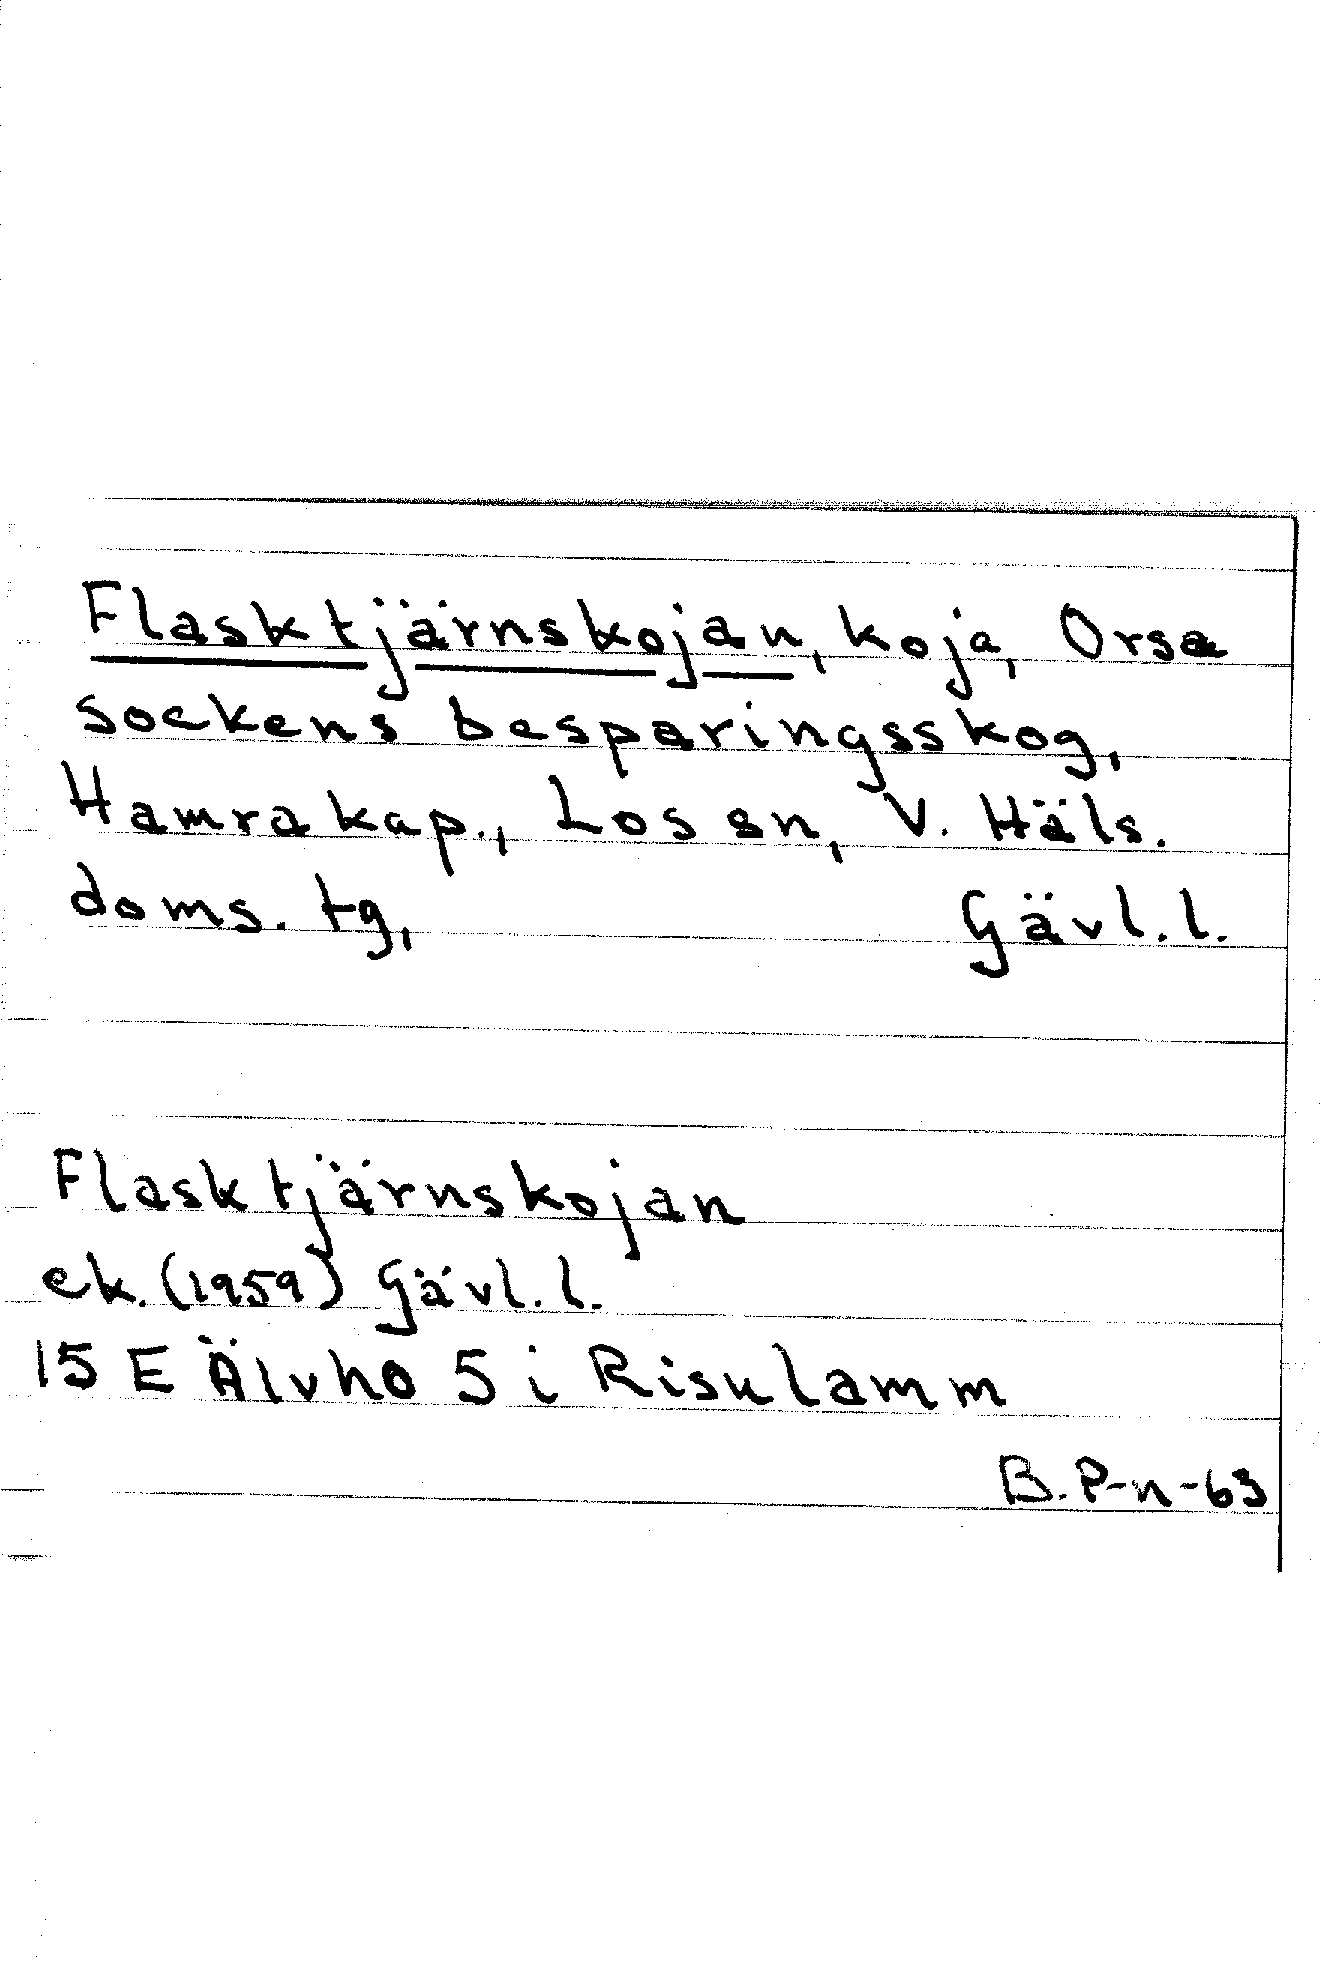 Flasktjärnskojan, koja, Orsa
sockens besparingsskog,
Hamra kap., Los sn, V. Häls.
doms. tg, Gävl.l.
Flasktjärnskojan
ek. (1959) Gävl.l.
15 E Älvho 5 i Risulamm
B.P-n-63